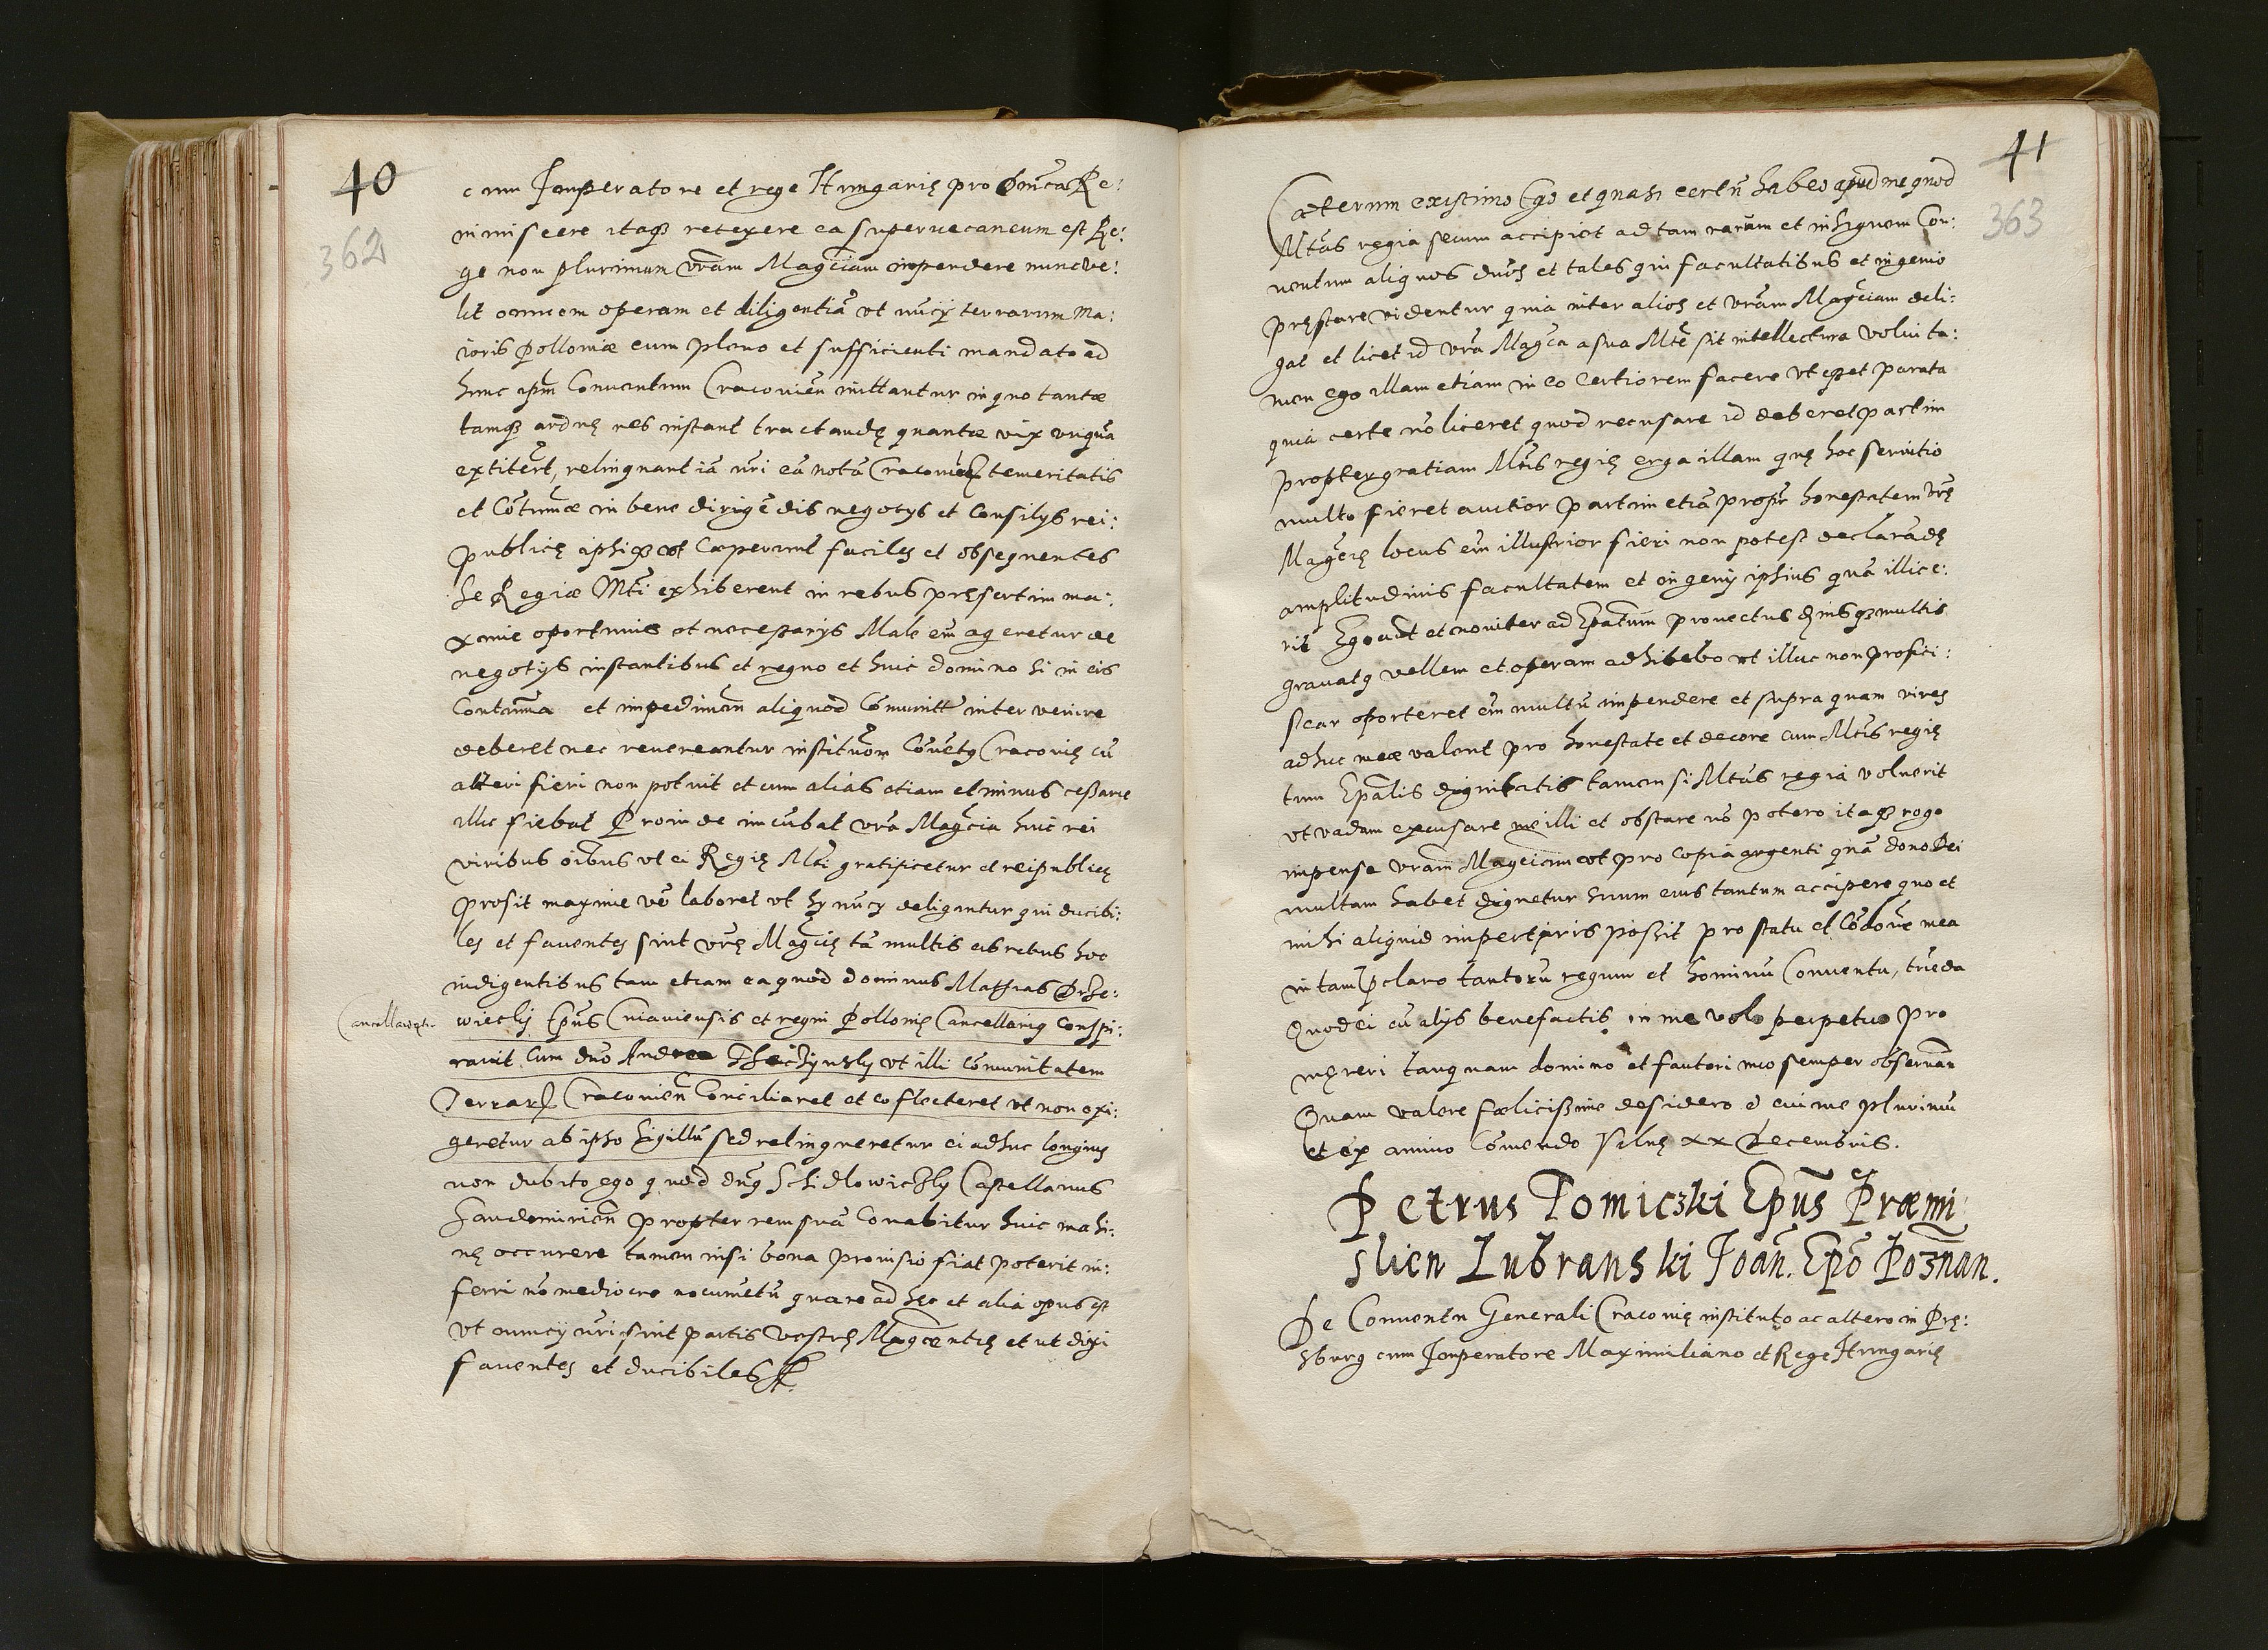 40
362
cum Imperatore et rege Hungarię pro Dominica Re:
miniscere itaq3 retexere ea supervacaneum est Re:
ge non plurimum vram Magciam impendere nunc ve:
lit omnem operam et diligentiã vt nuncÿ terrarum Ma:
ioris Polloniæ cum pleno et sufficienti mandato ad
hunc ipm Conventum Cracovień mittantur in quo tantæ
tamq3 arduę res instant tractandę quantæ vix vnquã
extiterũt, relinquant iã nri eã notã temeritatis
et in bene dirigẽdis negotÿs et Consilÿs rei:
publicę ipsiq3 vt Cæperunt faciles et obsequentes
se Regiæ Mti exhiberent in rebus pręsertim ma:
xime oportunis et necessarÿs Male em̃ ageretur de
negotÿs instantibus et regno et huic domino si in eis
et aliquod intervenire
deberet nec revereantur Cracovię cũ
alteri fieri non potuit et cum aliàs etiam et minus cessarie
illic fiebat Proinde incũbat vrã Magcia huic rei
viribus oĩbus vt ei Regię Mti gratificetur et reipublicę
prosit maxime vẽ laboret vt hÿ nũcÿ deligantur qui ducibi:
les et faventes sint vrę Magcię tã multis eis rebus hoc
indigentibus tam etiam ea quod dominus Mathias Drze:
Cancellarius
wiecky Epũs Cuiaviensis et regni Pollonię Cancellariq Conspi:
ravit Cum dño Andrea Theczynsky vt illi Comunitatem
Terrar Cracovień Conciliaret et cõflecteret vt non exi:
geretur ab ipso Sigillũ sed relinqueretur ei adhuc longius
non dubito ego quod dñq Schidlowiczky Castellanus
Sandomirień propter rem suã Conabitur huic machi:
nę occurere tamen nisi bona provisio fiat poterit in:
ferri nõ mediocre nocumẽtũ quare ad hęc et alia opus est
vt nuncÿ nri sint partis vestrę Magcentię et ut dixi
faventes et ducibiles
41
363
Cæterum existimo Ego et quasi certũ habeo apud me quod
Mtas regia secum accipiet ad tam rarum et insignem Con:
ventum aliquos duos et tales qui facultatibus et ingenio
pręstare videntur quia inter alios et vram Magciam deli:
gat et licet id vrã Magca a sua Mte sit intellectura volui ta:
men ego illam etiam in eo Certiorem facere vt esset parata
quia certe nõ liceret quod recusare id deberet partim
propter gratiam Mtis regię erga illam quę hoc servitio
multo fieret auctior partim etiã propter honestatem vrę
Magcię locus em̃ illustrior fieri non potest declarãdę
amplitudinis facultatem et ingenÿ ipsius quã illic e:
rit Ego aũt et noviter ad Epatum provectus q3 multis
gravatq vellem et operam adhibebo vt illuc non profici:
scar oporteret em̃ multũ impendere et supra quam vires
adhuc meæ valent pro honestate et decore cum Mtis regię
tum Epalis dignitatis tamen si Mtas regia voluerit
vt vadam excusare me illi et obstare nõ potero itaq3 rogo
impense vram Magciam vt pro copia argenti quã dono Dei
multam habet dignetur secum eius tantum accipere quo et
mihi aliquid impertiris possit pro statu et Cõdonẽ mea
in tam pclaro tantorũ regum et hominũ Conventu,
Quod ei cũ alÿs benefactis in me volo perpetuo pro
męreri tanquam domino et fautori meo semper observan
Quam valere fœlicissime desidero et cui me plurimũ
et ex animo Cõmendo Vilnę xx Decembris.
Petrus Tomiczki Epũs Præmi
slień Lubranski Joañ. Epõ Pozñan.
De Conventu Generali Cracovię instituto ac altero in Prę:
sburg cum Imperatore Maximiliano et Rege Hungarię